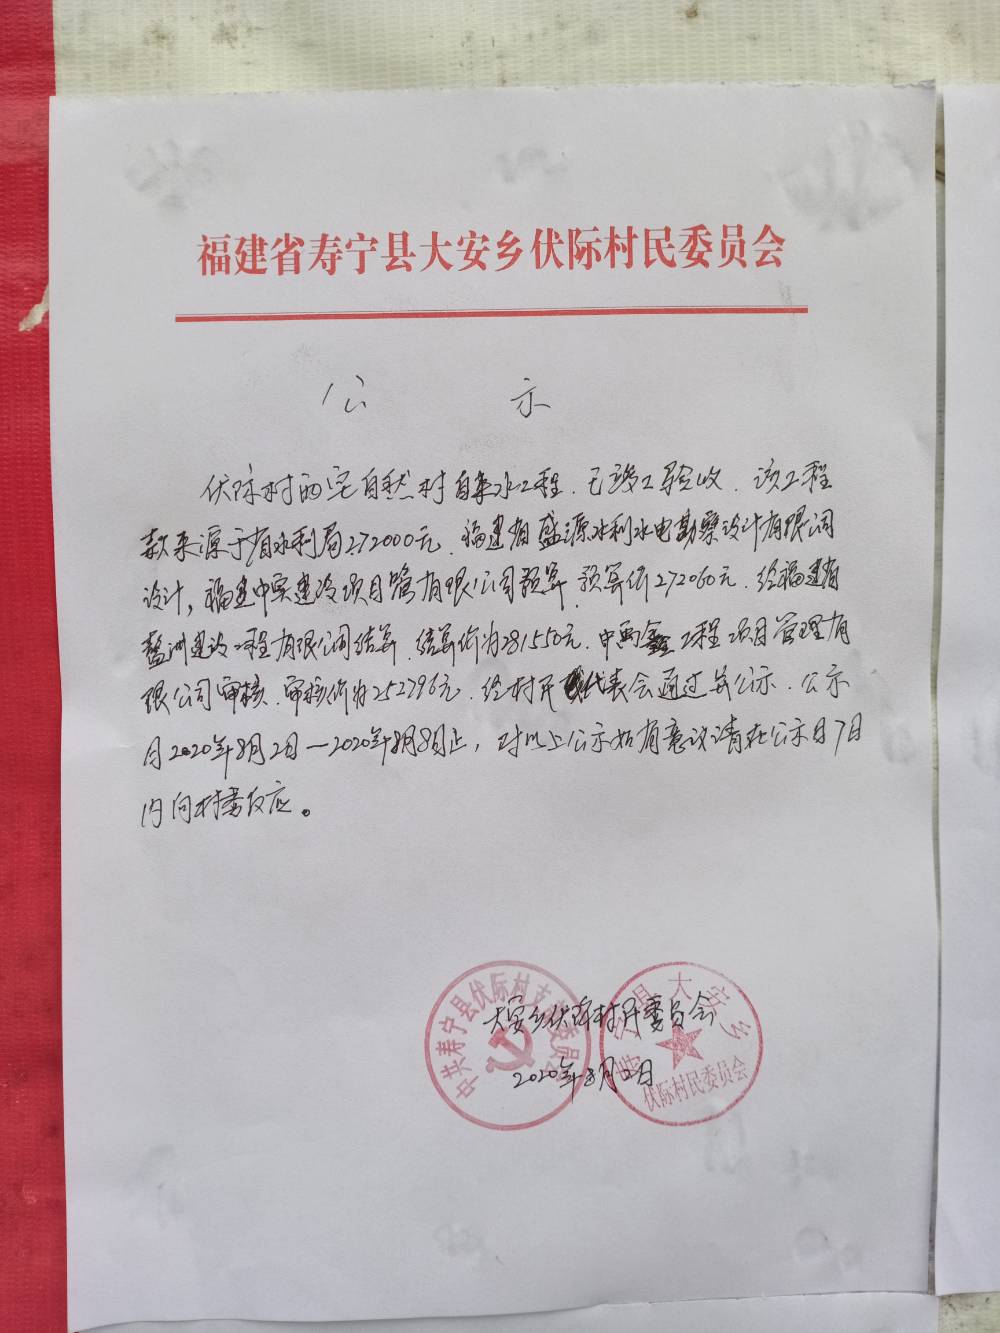 福建省寿宁县大安乡伏际村民委员会
公 示
伏际村的宅自然村自来水工程，已竣工验收，该工程
款来源于省水利局272000元，福建省盛源水利水电勘察设计有限公司
设计，福建中实建设项目管理有限公司预算，预算价272060元，经福建省
建设工程有限公司结算，结算价为281550元，中 鑫工程项目管理有
限公司审核，审核价为252796元，经村民代表会通过并公示，公示
日2020年8月2日—2020年8月8日止，对以上公示如有意议请在公示日7日
内向村委反应。
大安乡伏际村民委员会
2020年8月2日
中共寿宁县伏际村支部委员会
寿宁县大安乡
伏际村民委员会